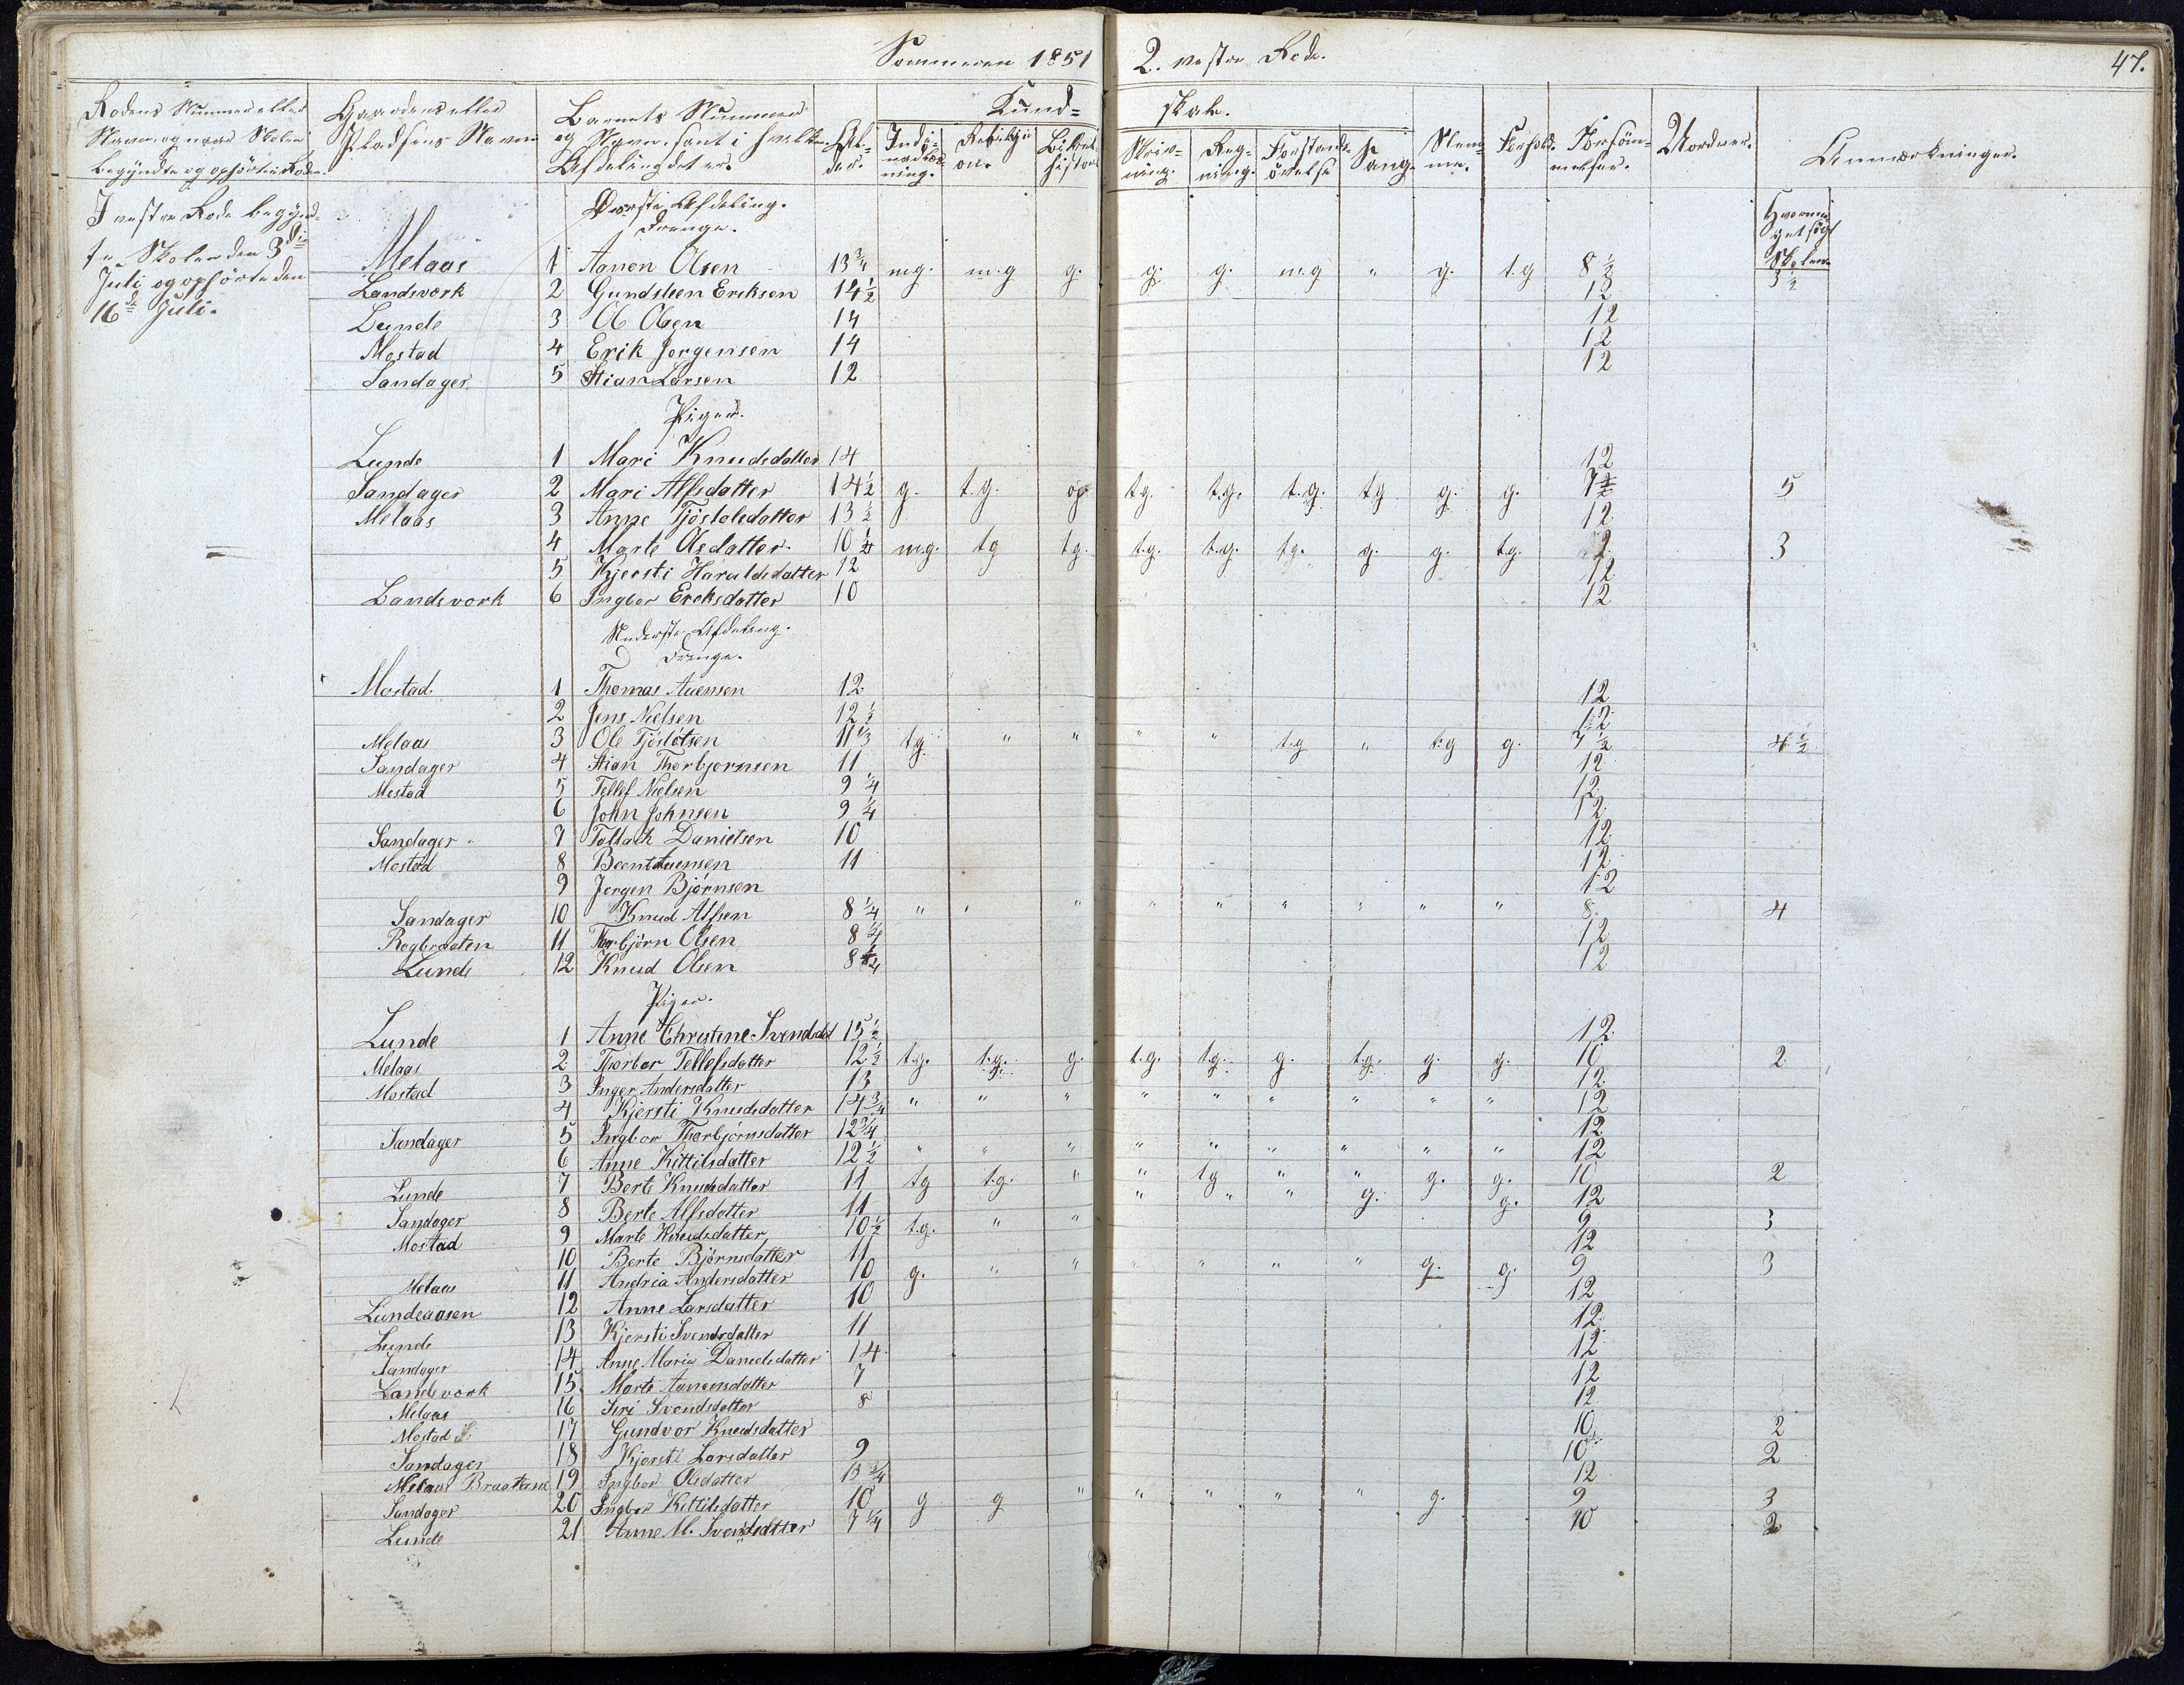 Sommeren 1851 2. vestre Rode. 47.
Rodens Nummer eller Navn og naar Skolen begyndte og ophörte i Roden.
Gaardens eller Pladsens Navn
Barnets Nummer og Navn samt i hvilken Afdeling det er.
Alder.
Kundskab.
Religion.
Skrivning.
Regning.
Forstandsövelse
Sang.
Stemme.
Forhold.
Forsömmelser.
Anmærkninger.
I vestre Rode begyndte Skolen den 3die Juli og ophörte den 16de Juli.
Øverste Afdeling.
Drenge.
Hvormeget sögt Skolen
Melaas 1 Aanon Olsen 13 3/4 m.g. m.g g. g. g. m.g " g. t.g 8 1/2 3 1/2
Landsverk 2 Gundsteen Eriksen 14 1/2 12
Lunde 3 Ole Olsen 14 12
Mostad 4 Erik Jorgensen 14 12
Sandager 5 Stian Larsen 12 12
Piger.
Lunde 1 Mari Knudsdatter 14 12
Sandager 2 Mari Alfsdatter 14 1/2 g. t.g. g t.g. t.g. t.g. tg g. g. 7 5
Melaas 3 Anne Tjöstolsdatter 13 1/2 12
4 Marte Olsdatter 10 1/4 m.g. tg tg. t.g. t.g. tg. g. g. t.g. 3
5 Kjersti Haraldsdatter 12 12
Landsvork 6 Ingbor Ereksdatter 10 12
Nederste Afdeling.
Drenge.
Mostad. 1 Thomas Auensen 12 12
2 Jens Nielsen 12 1/2 12
Melaas 3 Ole Tjöslotsen 11 1/3 tg. " " " " t.g " t.g g. 7 1/2 4 1/2
Sandager 4 Stian Thorbjornsen 11 12
Mostad 5 Tellef Nielsen 9 1/4 12
6 John Johnsen 9 1/4 12
Sandager 7 Tollack Danielsen 10 12
Mostad 8 Beent Auensen 11 12
9 Jorgen Bjørnsen 12
Sandager 10 Knud Alfsen 8 1/4 " " " " " " " " " 8. 4
Rogbraaten 11 Torbjörn Olsen 8 3/4 12
Lunde 12 Knud Olsen 8 12
Piger.
Lunde 1 Anne Christine Svendsdat 15 1/2 12
Melaas 2 Thorbor Tellefsdatter 12 1/2 t.g. t.g. g. t.g. t.g. g. t.g. g. g. 10 2
Mostad 3 Inger Andersdatter 13 12
4 Kjersti Knudsdatter 14 3/4 " " " " " " " " " 12
Sandager 5 Ingbor Thorbjörnsdatter 12 3/4 12
6 Anne Kittilsdatter 12 1/2 " " " " " " " " " 12
Lunde 7 Berte Knudsdatter 11 tg t.g. " " tg " " g. g. 10 2
Sandager 8 Berte Alfsdatter 11 " " " g. g. 12
Mostad 9 Marte Knudsdatter 10 1/2 t.g. " " 9 3
10 Berte Bjørnsdatter 11 12
Melaas 11 Andria Andersdatter 10 g. " " " " " " g. g. 9 3
Lundeaasen 12 Anne Larsdatter 10 12
Lunde 13 Kjersti Svendsdatter 11 12
Sandager 14 Anne Maria Danielsdatter 14 12
Landsvork 15. Marte Aanonsdatter 7 12
Melaas 16 Siri Svendsdatter 8 12
Mostad 17 Gundvor Knudsdatter 10 2
Sandager 18 Kjersti Larsdatter 9 10 2
Melaas Braatene 19 Ingbor Olsdatter 13 3/4 12
Sandager 20 Ingbor Kittilsdatter 10 g g " " " " " g. 9 3
Lunde 21 Anne M. Svendsdatter 7 1/4 10 2